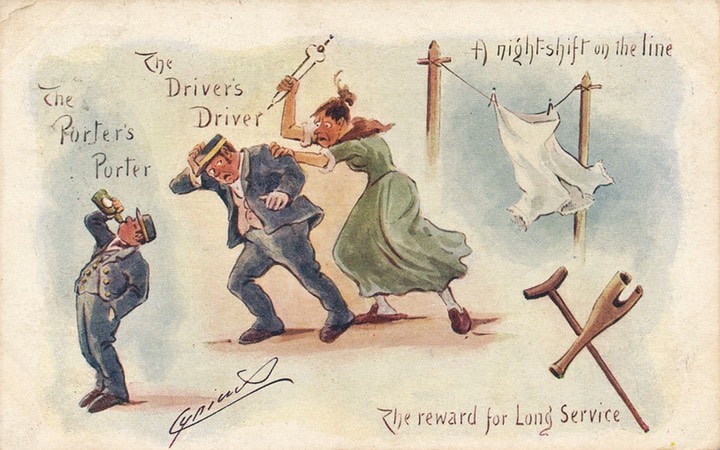 The
Porter's
Porter
The
Driver's
Driver
A night-shift on the line
The reward for Long Service